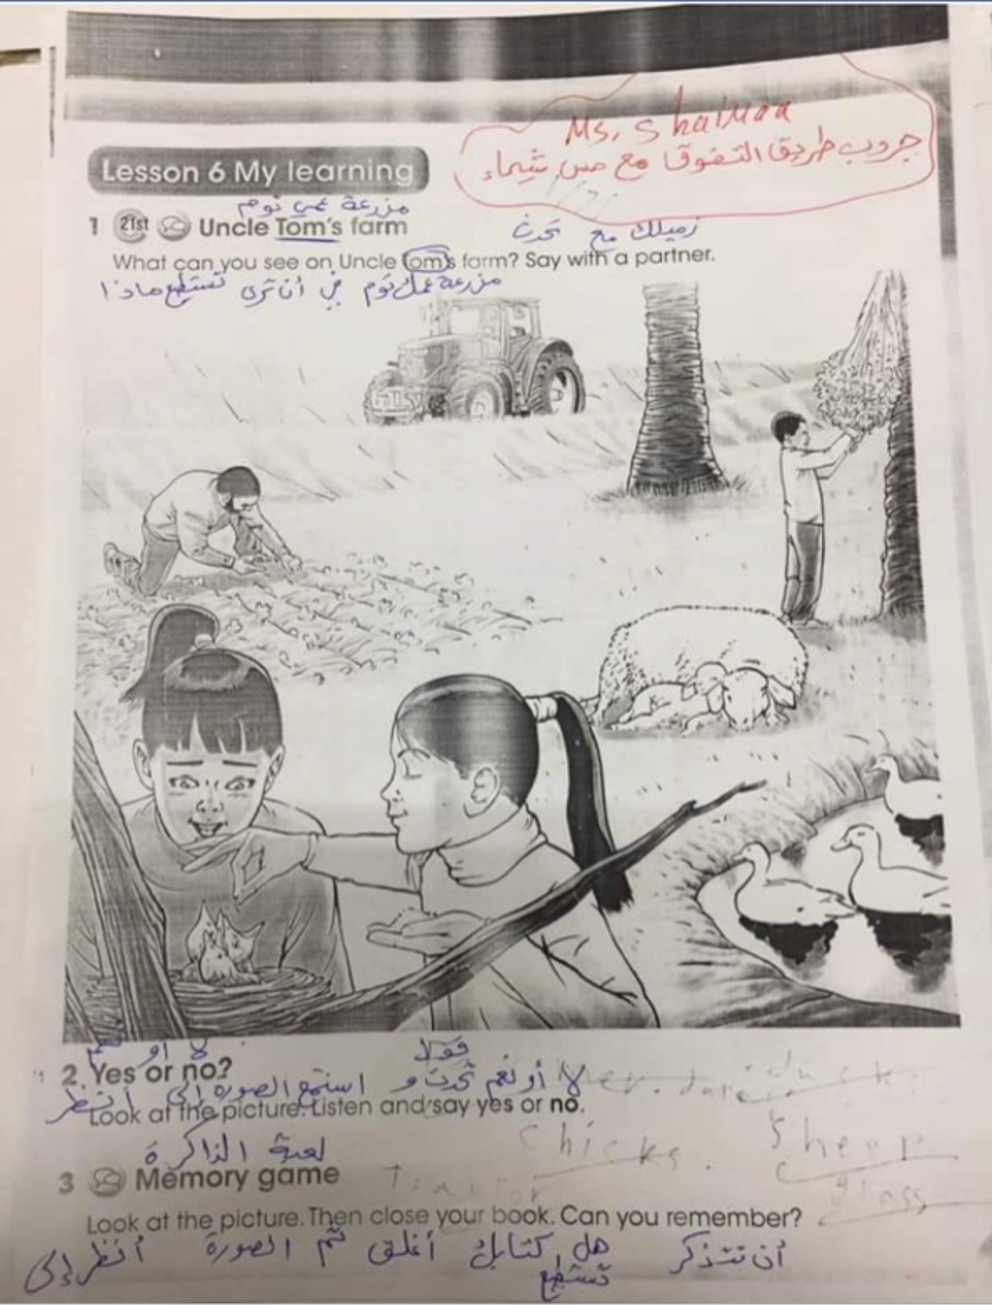 Ms. Shaimaa
جروب طريق التفوق مع مس شيماء
Lesson 6 My learning
مزرعة عمي توم
1 21st Uncle Tom's farm
زميلك مع تحدث
What can you see on Uncle Tom's farm? Say with a partner.
مزرعة عمك توم في أن ترى تستطيع ماذا
لا أو نعم
قولا
2. Yes or no?
لا أو نعم تحدث و استمع الصورة إلى أنظر
Look at the picture. Listen and say yes or no.
ducks
chicks. sheep
لعبة الذاكرة
3 Memory game
Tractor
glass
Look at the picture. Then close your book. Can you remember?
أن تتذكر هل تستطيع كتابك أغلق ثم الصورة أنظر إلى